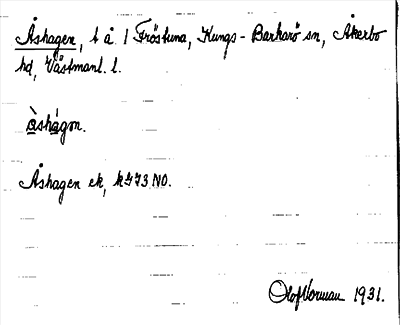 Åshagen, t å. / Fröstuna, Kungs-Barkarö sn, Åkerbo
hd, Västmanl. l.
åshågon.
Åshagen ek, k 773 NO.
Olof Norman 1931.